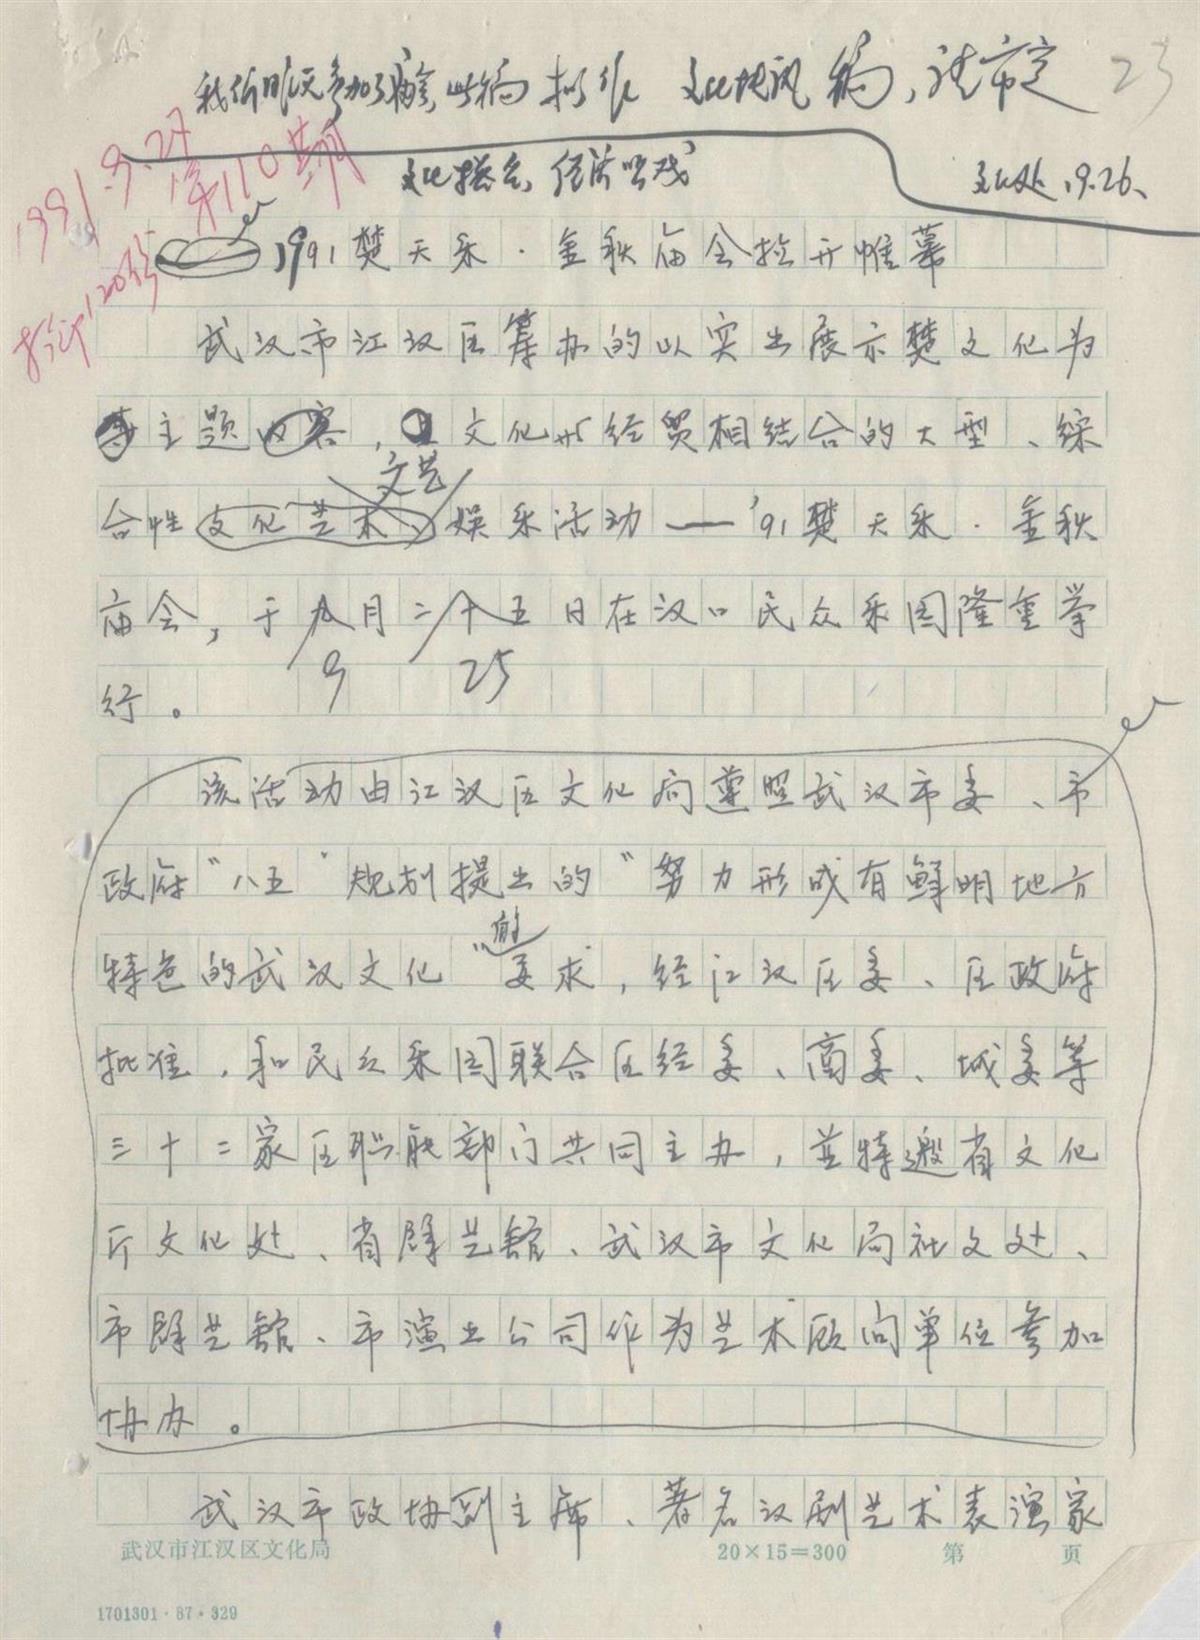 我们昨天参加了庙会,此稿拟作 文化快讯 稿,请审定
23
1991.9.27
第110期
打印120份
文化处.9.26.
文化搭台,经济唱戏
1991楚天乐·金秋庙会拉开帷幕
武汉市江汉区筹办的以突出展示楚文化为
主题内容,文化与经贸相结合的大型、综
文艺
合性文化艺术、娱乐活动——'91楚天乐·金秋
庙会,于九月二十五日在汉口民众乐园隆重举
9 25
行。
该活动由江汉区文化局遵照武汉市委、市
政府"八五"规划提出的"努力形成有鲜明地方
特色的武汉文化"的要求,经江汉区委、区政府
批准,和民众乐园联合区经委、商委、城委等
三十二家区职能部门共同主办,并特邀省文化
厅文化处、省群艺馆、武汉市文化局社文处、
市群艺馆、市演出公司作为艺术顾问单位参加
协办。
武汉市政协副主席、著名汉剧艺术表演家
武汉市江汉区文化局 20×15=300 第 页
1701301·87·329